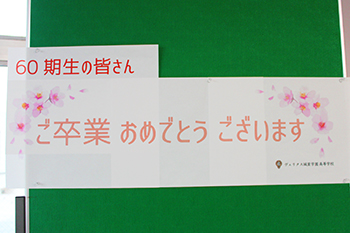 60期生の皆さん
ご卒業 おめでとう ございます